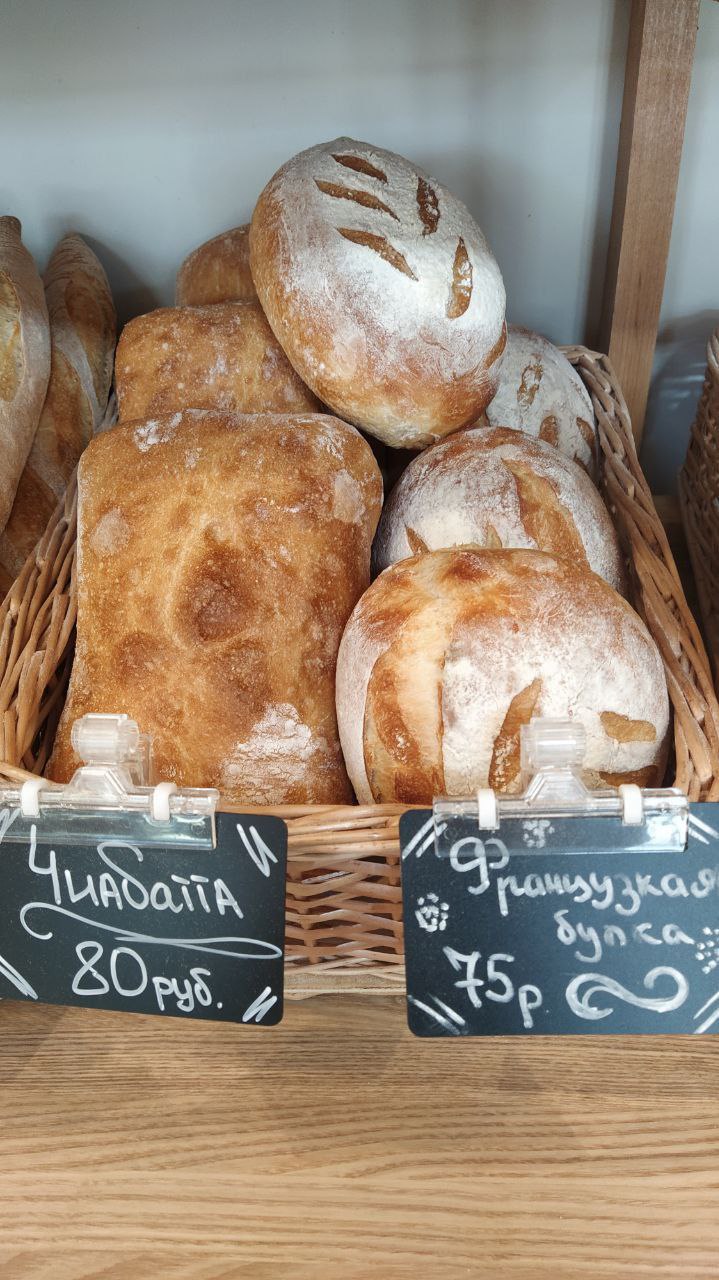 Чиабатта
80 руб.
Французкая
булка
75р